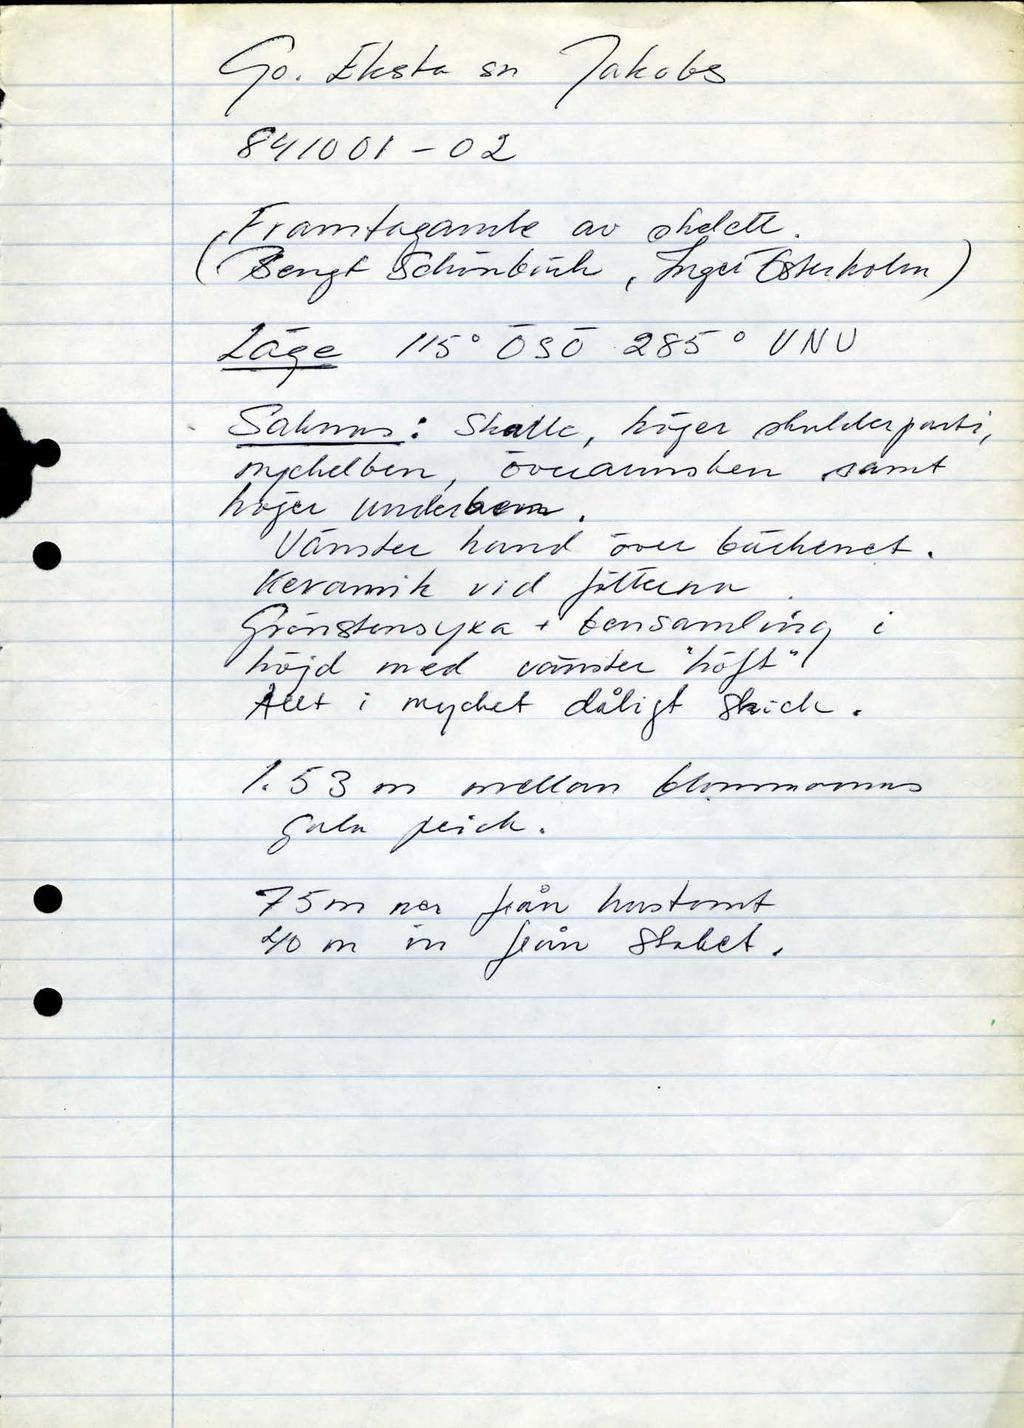 Go. Eksta sn Jakobs
841001-02
Framtagande av skelett.
(Bengt Schönbäck, Inger Österholm)
Läge 115° ÖSÖ 285° VNV
Saknas: Skalle, höger skulderparti,
nyckelben, överarmsben samt
höger underben.
Vänster hand över bäckenet.
Keramik vid fötterna.
Grönstensyxa + bensamling i
höjd med vänster "höft"
Allt i mycket dåligt skick.
1.53 m mellan blommornas
gula prick.
75 m ner från hustomt
40 m in från staket.